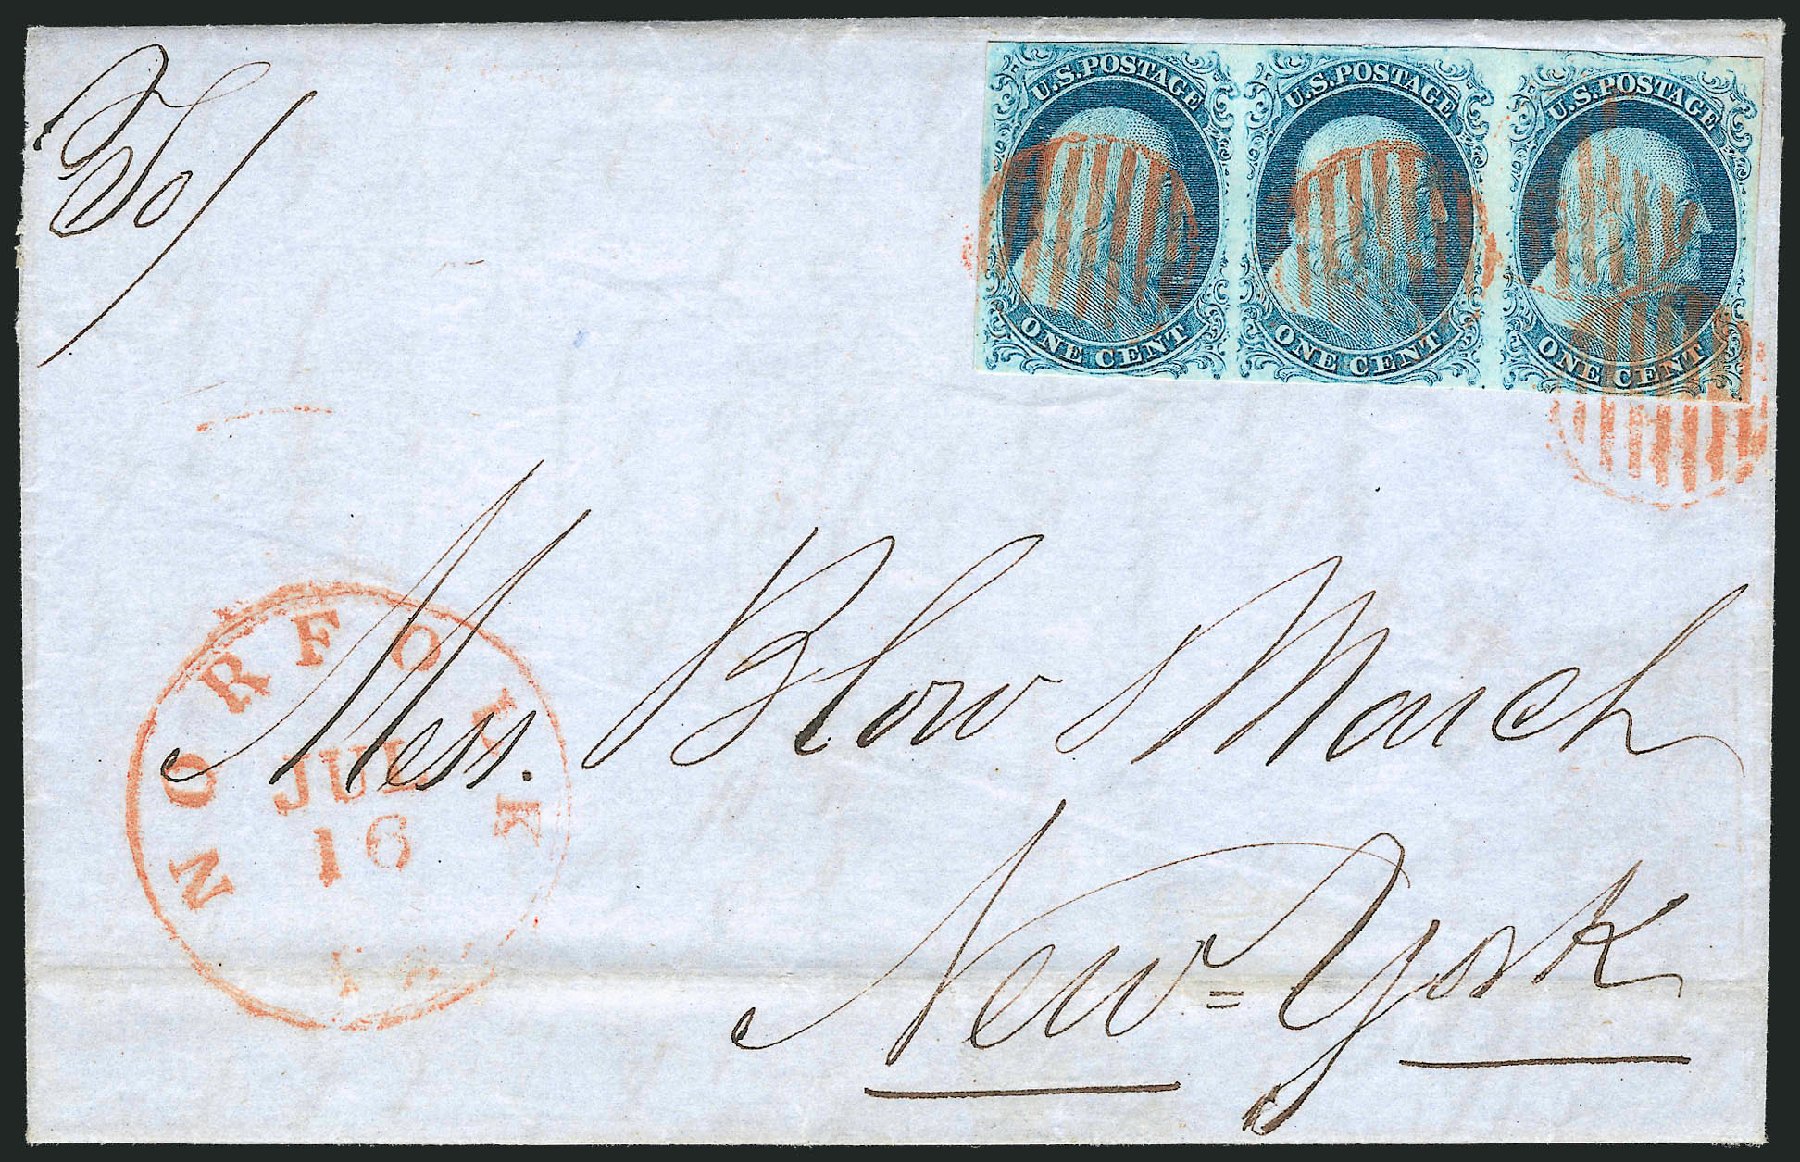 U.S. POSTAGE
ONE CENT
U.S. POSTAGE
ONE CENT
U.S. POSTAGE
ONE CENT
Mess. Blow & March
New=York
NORFOLK
JUL
16